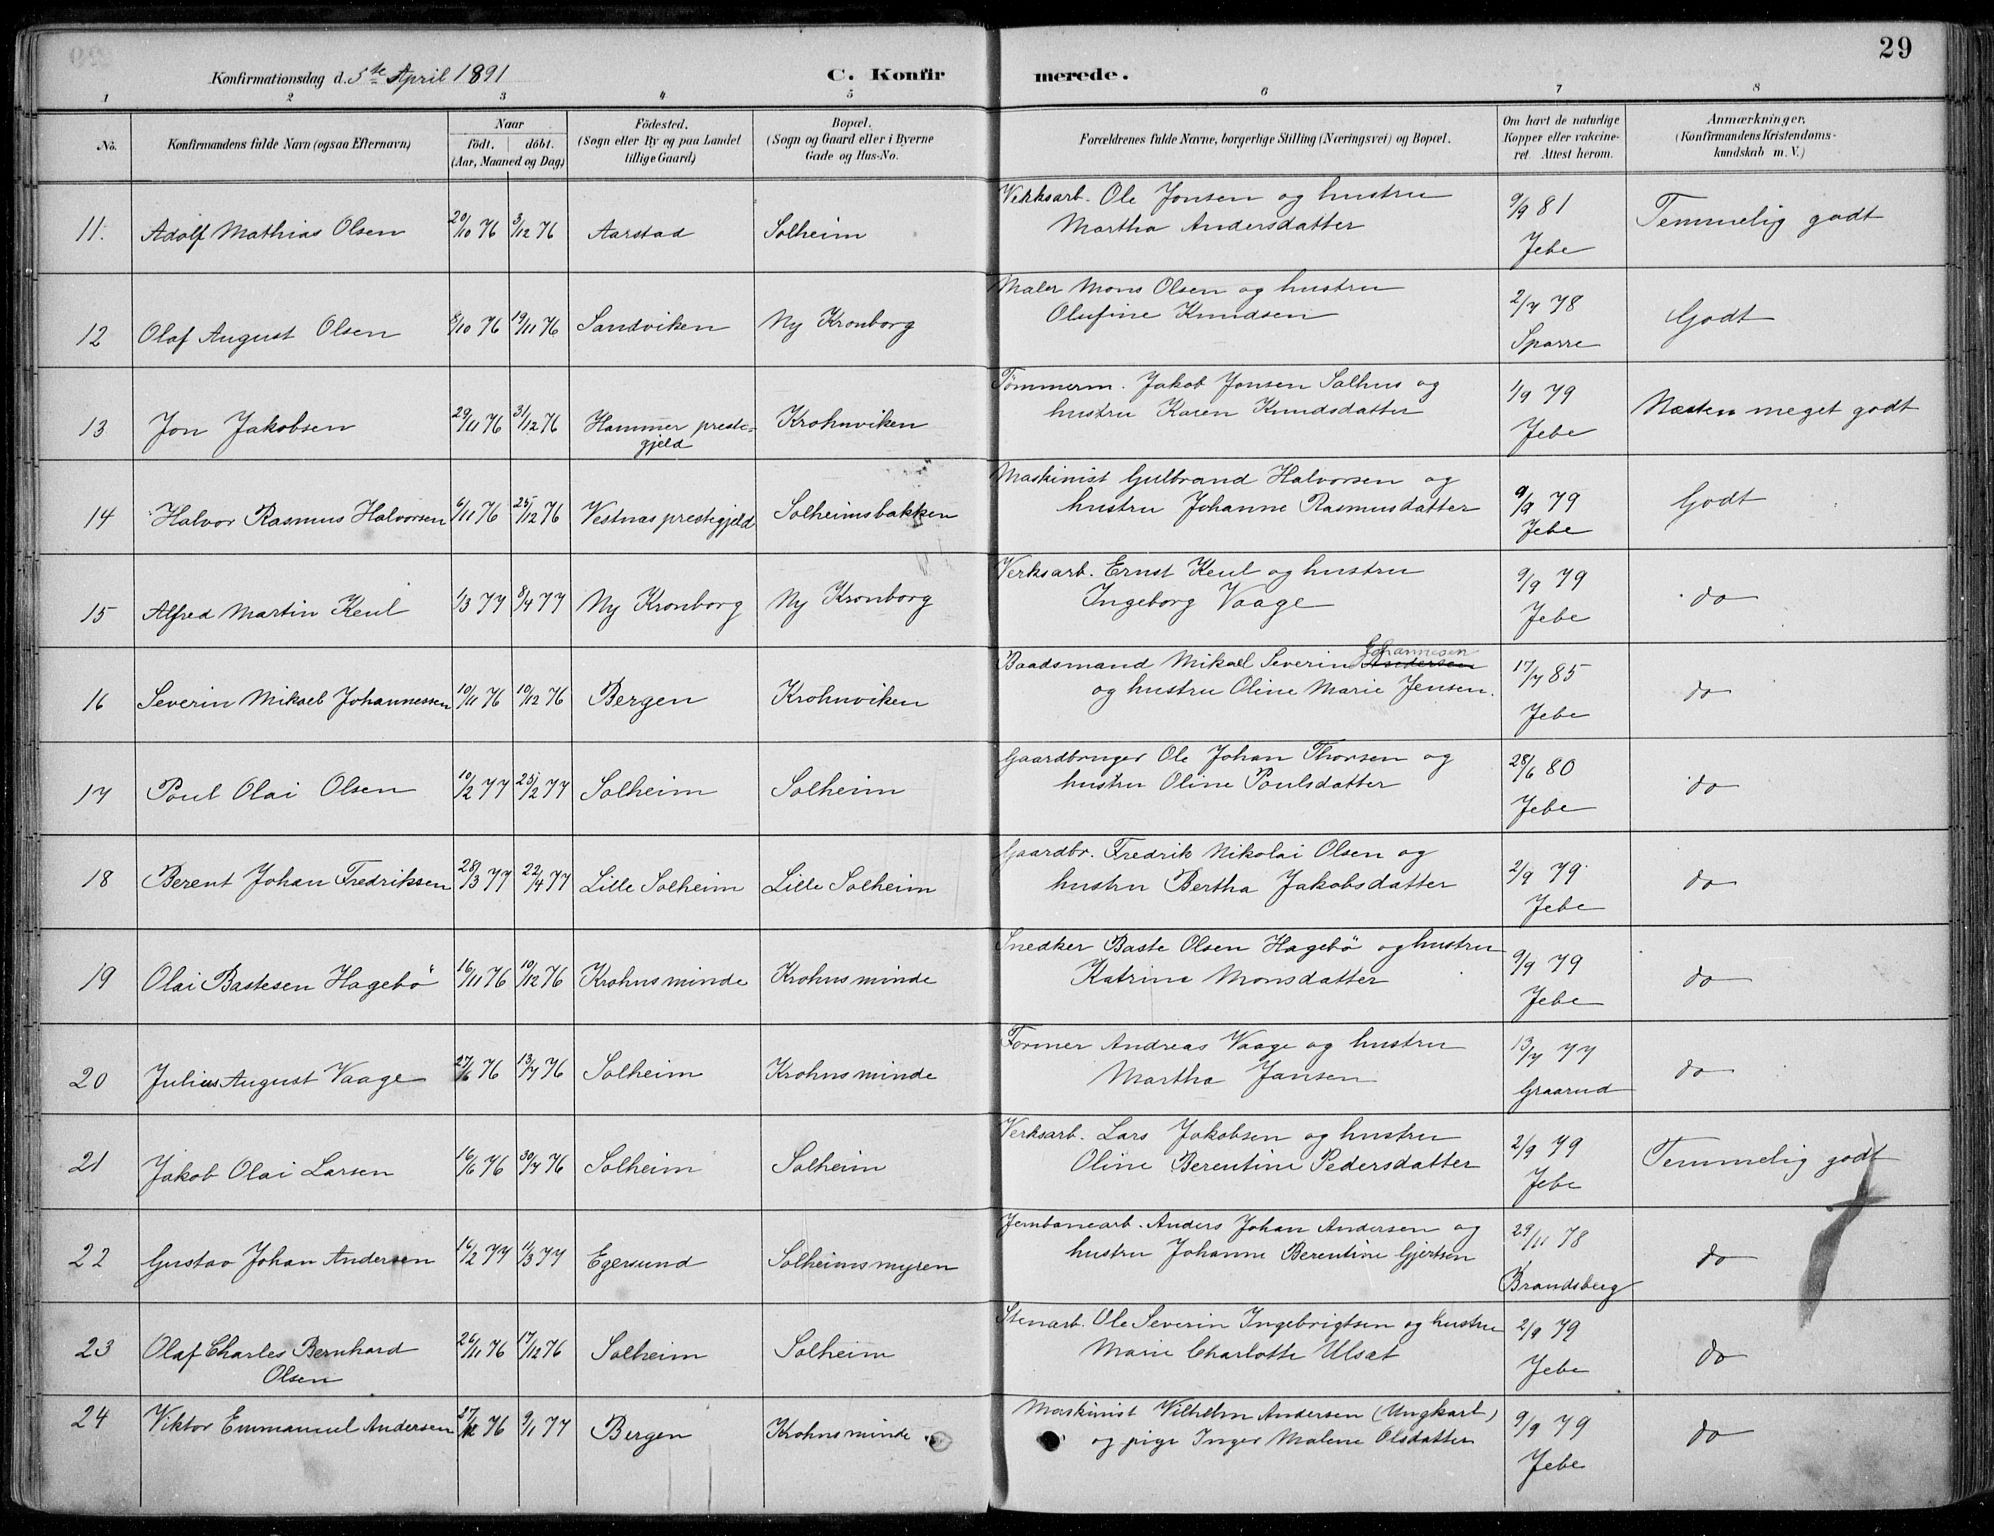 29
Konfirmationsdag d. 5te April 1891
C. Konfirmerede.
1 2 3 4 5 6 7 8
No. | Konfirmandens fulde Navn (ogsaa Efternavn) | Naar födt. döbt. (Aar, Maaned og Dag) | Födested. (Sogn eller By og paa Landet tillige Gaard) | Bopæl. (Sogn og Gaard eller i Byerne Gade og Hus-No. | Forældrenes fulde Navne, borgerlige Stilling (Næringsvei) og Bopæl. | Om havt de naturlige Kopper eller vakcineret Attest herom. | Anmærkninger. (Konfirmandens Kristendomskundskab m. V.)
11. | Adolf Mathias Olsen | 20/10 76 | 3/12 76 | Aarstad | Solheim | Verksarb. Ole Jonsen og hustru Martha Andersdatter | 9/9 81 Jebe | Temmelig godt
12 | Olaf August Olsen | 8/10 76 | 19/11 76 | Sandviken | Ny Kronborg | Maler Mons Olsen og hustru Olufine Knudsen | 2/7 78 Sparre | Godt
13 | Jon Jakobsen | 29/11 76 | 31/12 76 | Hammer preste=gjeld | Krohnviken | Tømmerm. Jakob Jonsen Salhus og hustru Karen Knudsdatter | 1/9 79 Jebe | Næsten meget godt
14 | Halvor Rasmus Halvorsen | 6/11 76 | 25/12 76 | Vestnæs prestegjeld | Solheimsbakken | Maskinist Gulbrand Halvorsen og hustru Johanne Rasmusdatter | 9/9 79 Jebe | Godt
15 | Alfred Martin Keul | 1/3 77 | 8/4 77 | Ny Kronborg | Ny Kronborg | Verksarb. Ernst Keul og hustru Ingeborg Vaage | 9/9 79 Jebe | do
16 | Severin Mikael Johannessen | 10/11 76 | 10/12 76 | Bergen | Krohnviken | Baadsmand Mikael Severin Andersen Johannesen og hustru Oline Marie Jensen. | 17/7 85 Jebe | do
17 | Poul Olai Olsen | 10/2 77 | 25/2 77 | Solheim | Solheim | Gaardbruger Ole Johan Thorsen og hustru Oline Poulsdatter | 28/6 80 Jebe | do
18 | Berent Johan Fredriksen | 28/3 77 | 22/4 77 | Lille Solheim | Lille Solheim | Gaardbr. Fredrik Nikolai Olsen og hustru Bertha Jakobsdatter | 2/9 79 Jebe | do
19 | Olai Bastesen Hagebö | 16/11 76 | 10/12 76 | Krohnsminde | Krohnsminde | Snedker Baste Olsen Hagebö og hustru Katrine Monsdatter | 9/9 79 Jebe | do
20 | Julius August Vaage | 27/6 76 | 13/7 76 | Solheim | Krohnsminde | Former Andreas Vaage og hustru Martha Jansen | 13/7 77 Graarud | do
21 | Jakob Olai Larsen | 16/6 76 | 30/7 76 | Solheim | Solheim | Verksarb. Lars Jakobsen og hustru Oline Berentine Pedersdatter | 2/9 79 Jebe | Temmelig godt
22 | Gustav Johan Andersen | 16/2 77 | 11/3 77 | Egersund | Solheimsmyren | Jernbanearb. Anders Johan Andersen og hustru Johanne Berentine Gjertsen | 29/11 78 Brandsberg | do
23 | Olaf Charles Bernhard Olsen | 26/11 76 | 17/12 76 | Solheim | Solheim | Stenarb. Ole Severin Ingebrigtsen og hustru Marie Charlotte Ulsæt | 2/9 79 Jebe | do
24 | Viktor Emmanuel Andersen | 27/12 76 | 9/1 77 | Bergen | Krohnsminde | Maskinist Vilhelm Andersen (Ungkarl) og pige Inger Malene Olsdatter | 9/9 79 Jebe | do